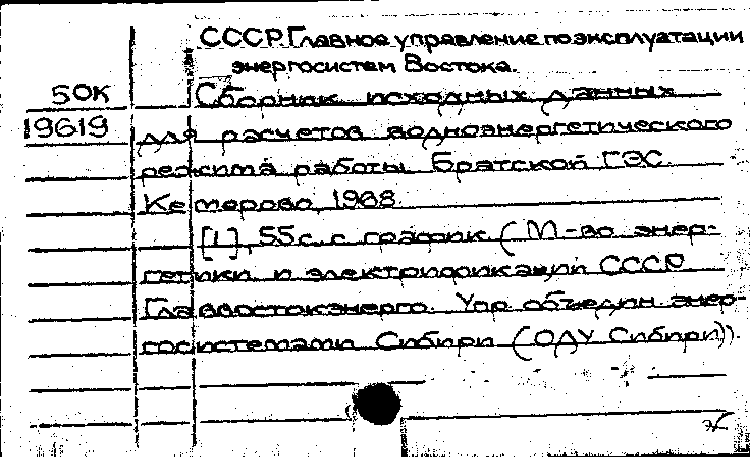 СССР. Главное управление по эксплуатации
энергосистем Востока.
50К
Сборник исходных данных
19619
для расчетов водноэнергетического
режима работы Братской ГЭС.
Кемерово, 1968.
[1], 55 с. с график (М-во энер-
гетики и электрификации СССР
Главвостокэнерго. Упр объедин энер-
госистемами Сибири (ОДУ Сибири)).